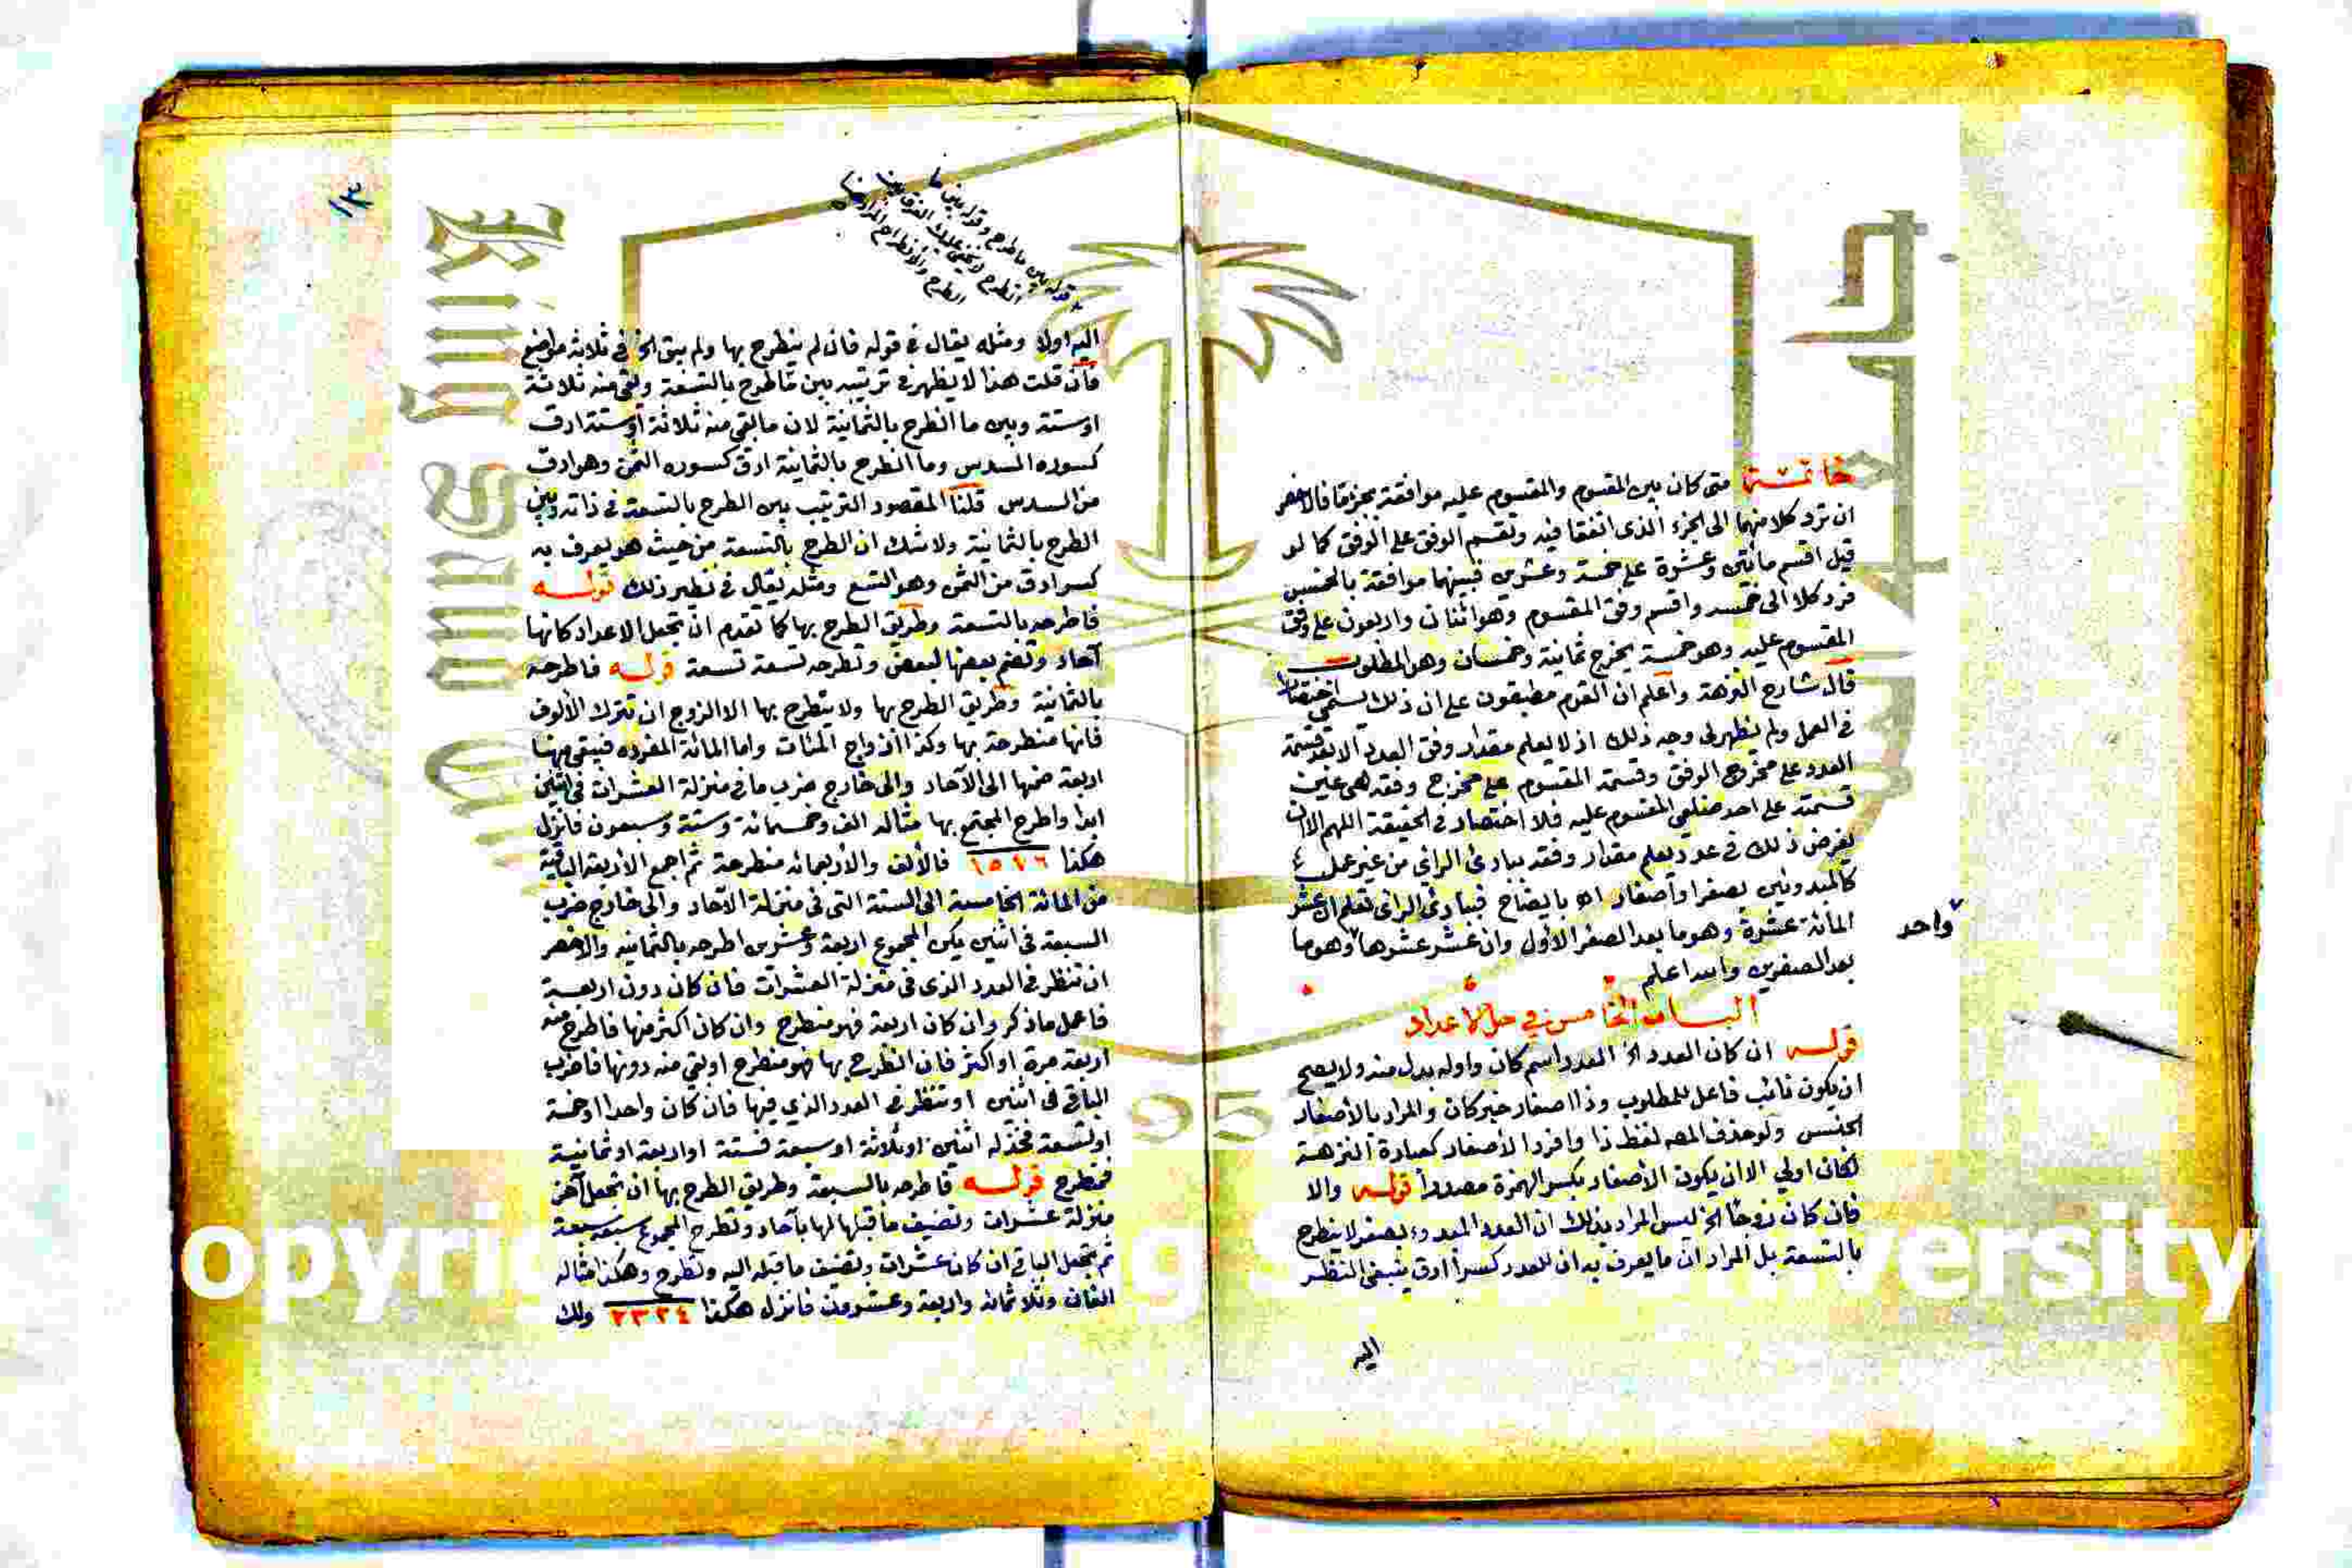 خاتمة متى كان بين المقسوم والمقسوم عليه موافقة بجزء ما فالاخصر
ان ترد كلا منهما الى الجزء الذى اتفقا فيه وتقسم الوفق على الوفق كما لو
قيل اقسم مأتين وعشرة على خمسة وعشرين فبينهما موافقة بالخمس
فرد كلا الى خمسه واقسم وفق المقسوم وهو اثنان واربعون على وفق
المقسوم عليه وهو خمسة يخرج ثمانية وخمسان وهو المطلوب
قال شارح النزهة واعلم ان القوم مطبقون على ان ذلك يسمى اختصارا
في العمل ولم يظهر لى وجه ذلك اذ لا يعلم مقدار وفق العدد الا بعد قسمة
العدد على مخرج الوفق وقسمة المقسوم على مخرج وفقه هى عين
قسمته على احد ضلعى المقسوم عليه فلا اختصار في الحقيقة اللهم الا ان
يفرض ذلك في عدد يعلم مقدار وفقه ببادئ الرائ من غير عمل
كالمبدوئين بصفر او أصفار اه بايضاح فببادئ الرائ تعلم ان عشر
المائة عشرة وهو ما بعد الصفر الأول وان عشر عشرها وهو ما
واحد
بعد الصفرين والله اعلم
الباب الخامس في حل الاعداد
قوله ان كان العدد الخ العدد اسم كان واوله بدل منه ولا يصح
ان يكون نائب فاعل للمطلوب وذا اصفار خبر كان والمراد بالأصفار
الجنس ولو حذف المص لفظ ذا وافرد الأصفار كعبارة النزهة
لكان اولي الا ان يكون الأصفار بكسر الهمزة مصدرا قوله والا
فان كان زوجا الخ ليس المراد بذلك ان العدد المبدوء بصفر لا ينطرح
بالتسعة بل المراد ان ما يعرف به ان للعدد كسرا ادق ينبغى النظر
اليه
١٣
قوله بين ما طرح وقوله بين ما
انطرح
الطرح والانطراح المراد
اليه اولا ومثله يقال في قوله فان لم ينطرح بها ولم يبق الخ في ثلاثة مواضع
فان قلت هذا لا يظهر في ترتيبه بين ما طرح بالتسعة وبقى منه ثلاثة
اوستة وبين ما انطرح بالثمانية لان ما بقى منه ثلاثة اوستة ادق
كسوره السدس وما انطرح بالثمانية ادق كسوره الثمن وهو ادق
من السدس قلنا المقصود الترتيب بين الطرح بالتسعة في ذاته وبين
الطرح بالثمانية ولا شك ان الطرح بالتسعة من حيث هو يعرف به
كسر ادق من الثمن وهو التسع ومثله يقال في نظير ذلك قوله
فاطرحه بالتسعة وطريق الطرح بها كما تقدم ان تجعل الاعداد كانها
آحاد وتضم بعضها لبعض وتطرحه تسعة تسعة قوله فاطرحه
بالثمانية وطريق الطرح بها ولا ينطرح بها الا الزوج ان تترك الألوف
فانها منطرحة بها وكذا ازواج المئات واما المائة المفرده فيبقى منها
اربعة ضمها الى الآحاد والى خارج ضرب ما في منزلة العشرات في اثنين
ابدا واطرح المجتمع بها مثاله الف وخمسمائة وستة وسبعون فانزل
هكذا ١٥٧٦ فالألف والأربعمائة منطرحة ثم اجمع الأربعة الباقية
من المائة الخامسة الى الستة التى في منزلة الآحاد والى خارج ضرب
السبعة في اثنين يكن المجموع اربعة وعشرين اطرحه بالثمانية والاخصر
ان تنظر في العدد الذى في منزلة العشرات فان كان دون اربعة
فاعمل ما ذكر وان كان اربعة فهو منطرح وان كان اكثر منها فاطرح منه
اربعة مرة او اكثر فان انطرح بها فهو منطرح او بقي منه دونها فاضرب
الباقي في اثنين او تنظر في العدد الذي فيها فان كان واحدا او خمسة
او تسعة فخذ له اثنين او ثلاثة او سبعة فستة او اربعة او ثمانية
فمنطرح قوله فاطرحه بالسبعة وطريق الطرح بها ان تجعل آخر
منزلة عشرات وتضيف ما قبلها لها بآحاد وتطرح المجموع سبعة سبعة
ثم تجعل الباقي ان كان عشرات وتضيف ما قبله اليه وتطرح وهكذا مثاله
الفان وثلاثمائة واربعة وعشرون فانزل هكذا ٢٣٢٤ ولك